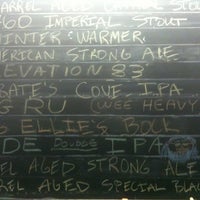 BARREL AGED
'60 IMPERIAL STOUT
WINTER WARMER
AMERICAN STRONG ALE
ELEVATION 83
COVE IPA
RU (WEE HEAVY)
ELLIE'S BOCK
DE IPA
EL AGED STRONG ALE
REL AGED SPECIAL BLA